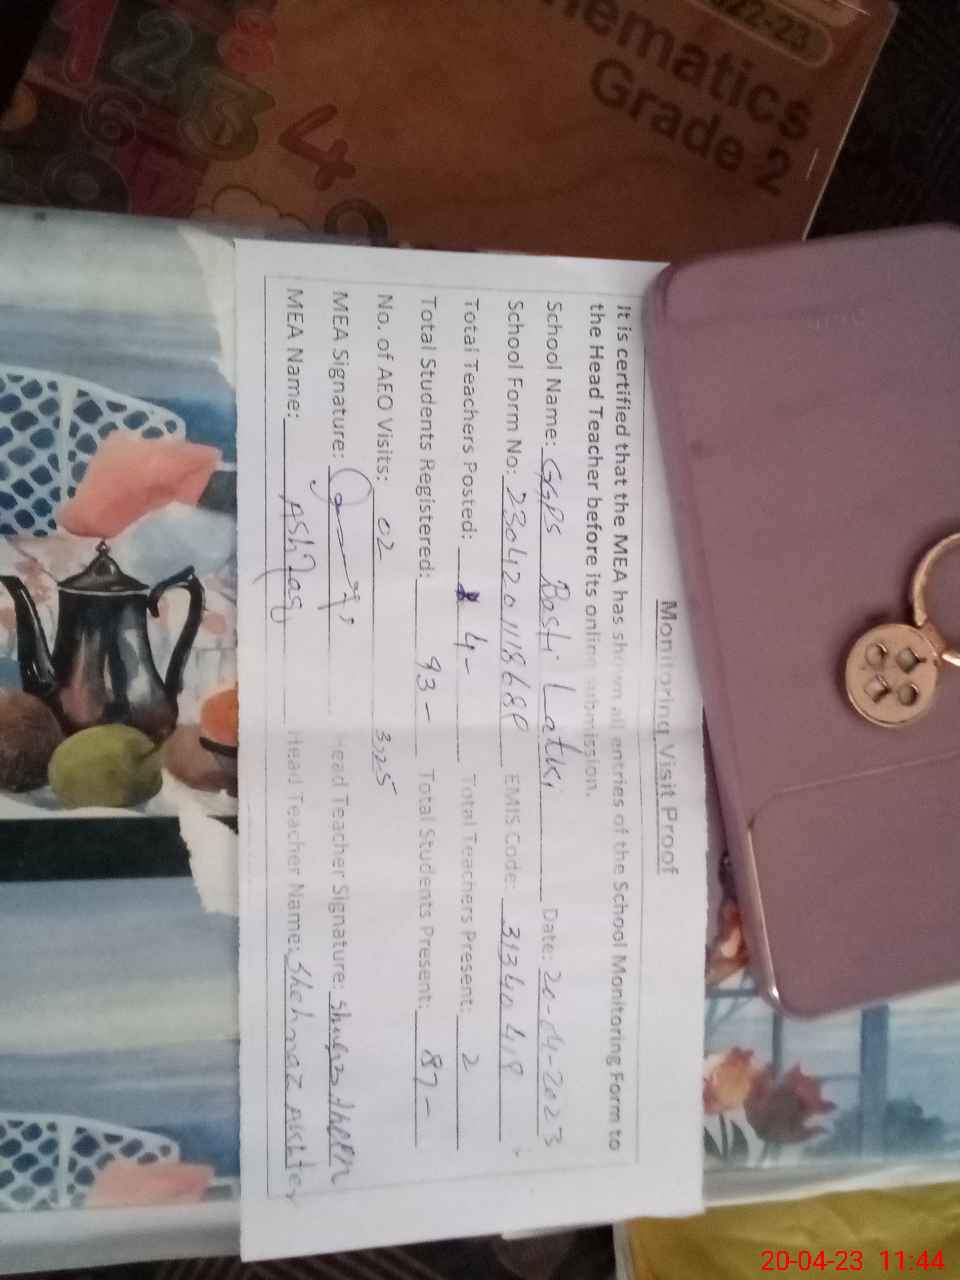 2022-23
Mathematics
Grade 2
1 2 3 8
6 3 4
Monitoring Visit Proof
It is certified that the MEA has shown all entries of the School Monitoring Form to
the Head Teacher before its online submission.
School Name: GGPS Basti Latki Date: 20-04-2023
School Form No: EMIS Code:
Total Teachers Posted: 4- Total Teachers Present: 2
Total Students Registered: 93- Total Students Present: 87-
No. of AEO Visits: 02
MEA Signature: Head Teacher Signature:
MEA Name: Ashfaq Head Teacher Name: Shehnaz Akhter
20-04-23 11:44